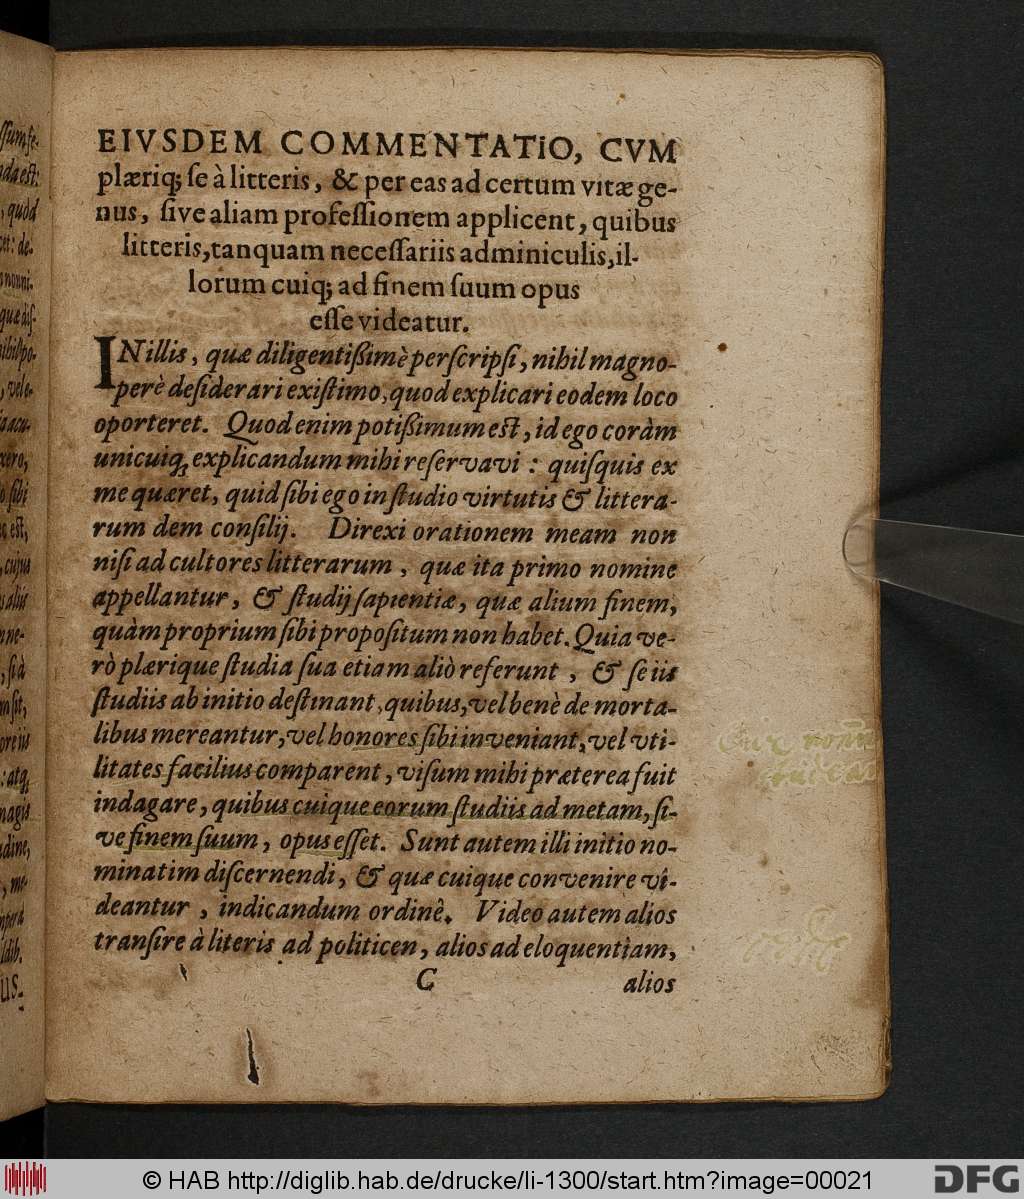 EIVSDEM COMMENTATIO, CVM
plæriq; se à litteris, & per eas ad certum vitæ ge-
nus, sive aliam professionem applicent, quibus
litteris, tanquam necessariis adminiculis, il-
lorum cuiq; ad finem suum opus
esse videatur.
IN illis, quæ diligentißimè perscripsi, nihil magno-
perè desiderari existimo, quod explicari eodem loco
oporteret. Quod enim potißimum est, id ego coràm
unicuiq; explicandum mihi reservavi : quisquis ex
me quæret, quid sibi ego in studio virtutis & littera-
rum dem consilij. Direxi orationem meam non
nisi ad cultores litterarum, quæ ita primo nomine
appellantur, & studij sapientiæ, quæ alium finem,
quàm proprium sibi propositum non habet. Quia ve-
rò plærique studia sua etiam aliò referunt, & se iis
studiis ab initio destinant, quibus, vel benè de morta-
libus mereantur, vel honores sibi inveniant, vel vti-
litates facilius comparent, visum mihi præterea fuit
indagare, quibus cuique eorum studiis ad metam, si-
ve finem suum, opus esset. Sunt autem illi initio no-
minatim discernendi, & quæ cuique convenire vi-
deantur, indicandum ordinê. Video autem alios
transire à literis ad politicen, alios ad eloquentiam,
C
alios
© HAB http://diglib.hab.de/drucke/li-1300/start.htm?image=00021
DFG